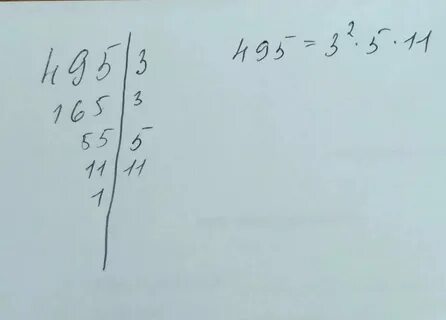 495 | 3
165 | 3
55 | 5
11 | 11
1 |
495 = 3² · 5 · 11